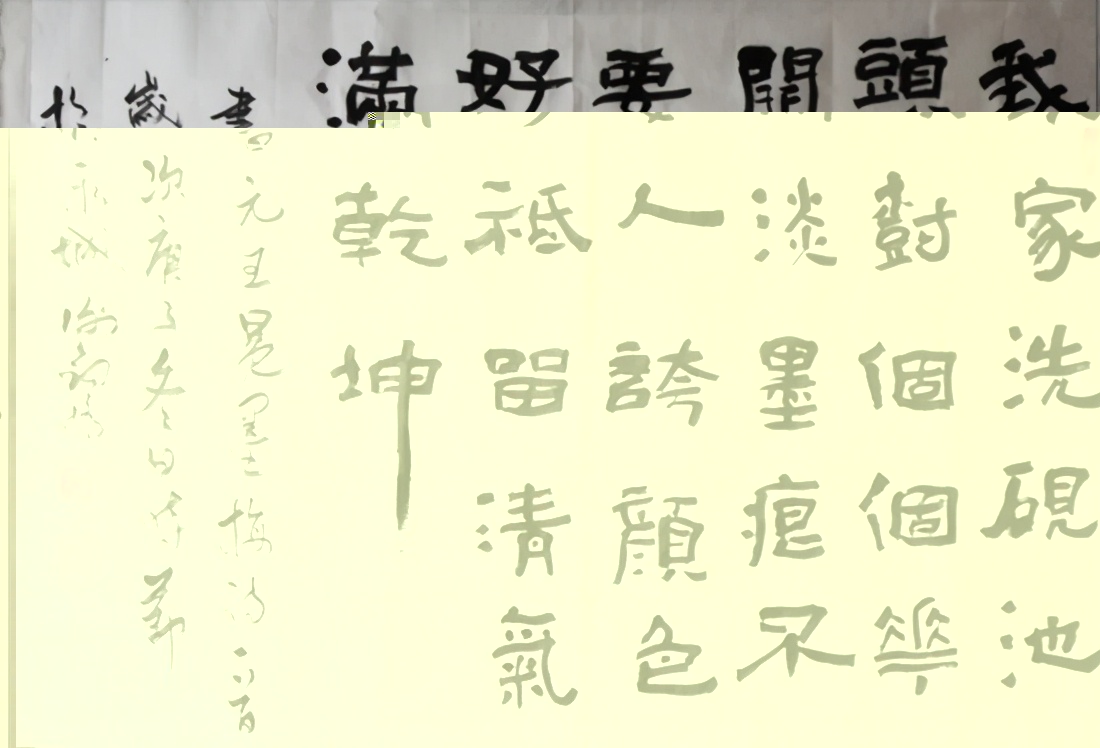 我家洗硯池
頭對個個華
開淡墨痕不
要人誇顔色
好祗留清氣
滿乾坤
書元王冕墨梅詩一首
歲次庚子冬日時節
於永城